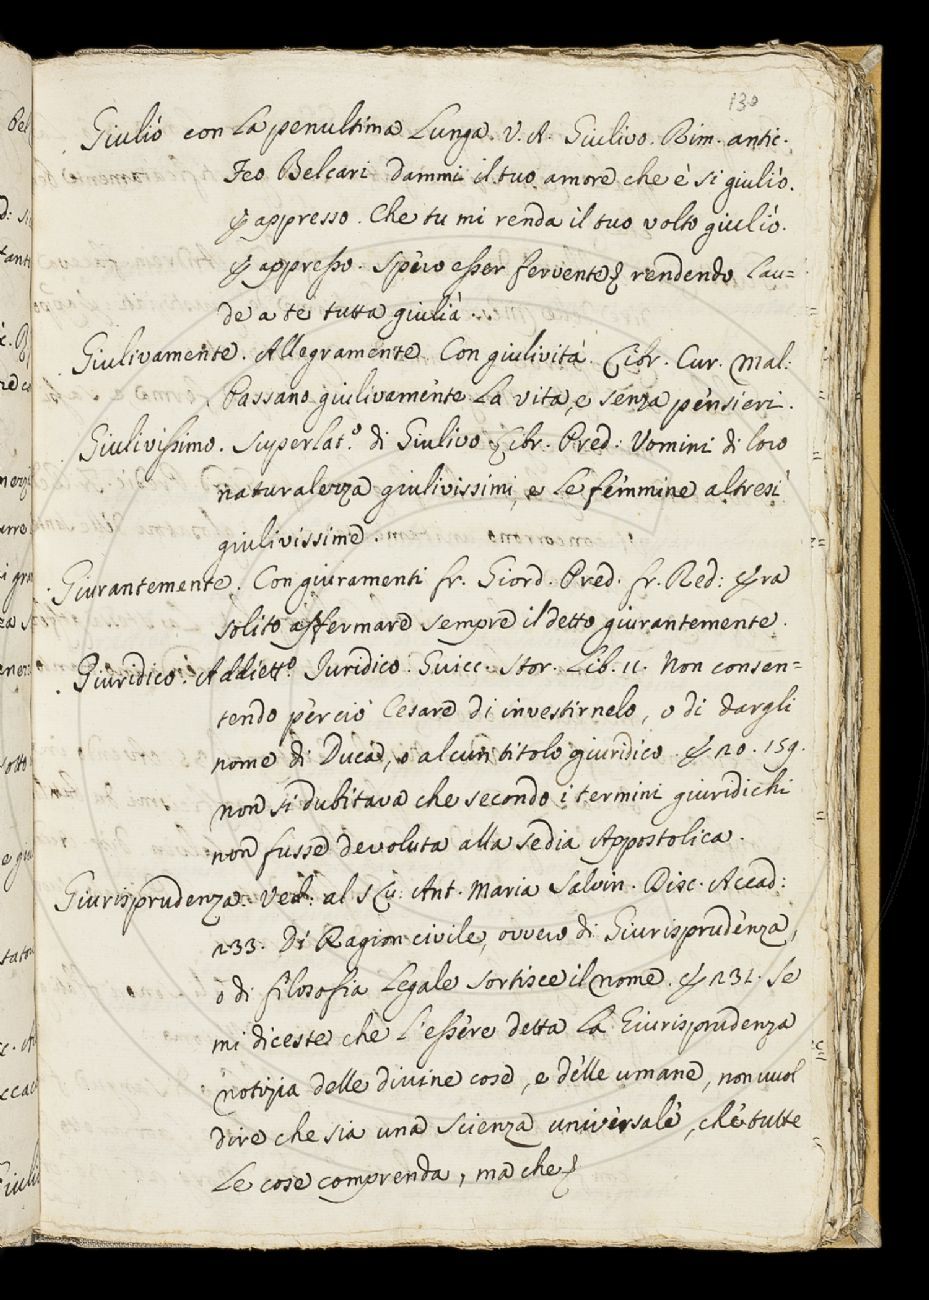 130
Giulío con la penultima lunga. V. A. Giulivo. Rim. antic.
Feo Belcari dammi il tuo amore che è si giulío.
E appresso. Che tu mi renda il tuo volto giulío.
E appresso. Spero esser fervente rendendo lau=
de a te tutta giulía.
Giulivamente. Allegramente. Con giulività. Libr. Cur. Mal:
Passano giulivamente la vita, e senza pensieri.
Giulivissimo. Superlat.º di Giulivo Libr. Pred: Uomini di loro
naturalezza giulivissimi, e le femmine altresì
giulivissime.
Giurantemente. Con giuramenti fr. Giord. Pred. fr. Red: Era
solito affermare sempre il detto giurantemente.
Giuridico. Addiettº. Juridico. Guicc. Stor. Lib. 11. Non consen=
tendo perciò Cesare di investirnelo, o di dargli
nome di Duca, o alcun titolo giuridico. E no. 159.
non si dubitava che secondo i termini giuridichi
non fusse devoluta alla sedia Appostolica.
Giurisprudenza. Ved: al S Ant. Maria Salvin. Disc. Accad:
233. Di Ragion civile, ovvero di Giurisprudenza,
o di filosofia legale sortisce il nome. E 231. Se
mi diceste che l'essere detta la Giurisprudenza
notizia delle divine cose, e delle umane, non vuol
dire che sia una scienza universale, che tutte
le cose comprenda, ma che